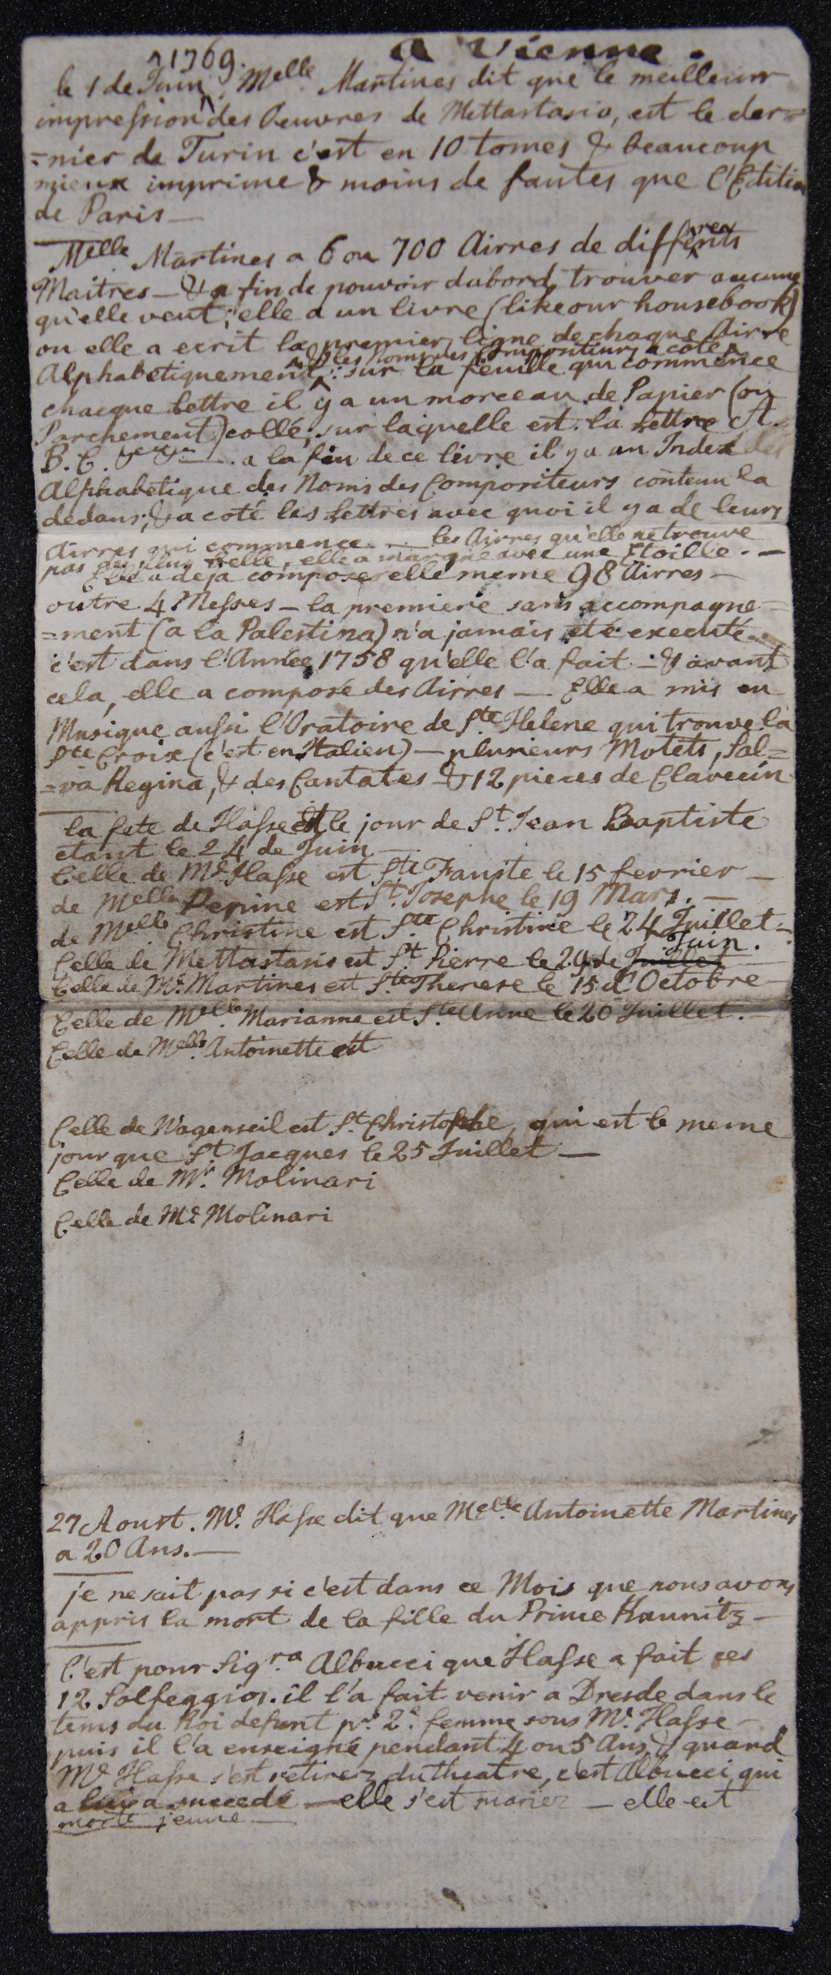 a Vienne.
le 1 de Juin ^1769. Melle Martines dit que le meilleur
impression des Oeuvres de Mettastasio, est le der=
=nier de Turin c'est en 10 tomes & beaucoup
mieux imprimé & moins de fautes que l'Edition
de Paris —
Melle Martines a 6 ou 700 Airres de differents
Maitres — & a fin de pouvoir dabord trouver aucune
qu'elle veut; elle a un livre (like our housebook)
ou elle a ecrit la premier ligne de chaque Airre
& les Noms des Compositeurs a coté
Alphabetiquement: sur la feuille qui commence
chacque lettre il y a un morceau de Papier (ou
Parchement) collé, sur laquelle est la Lettre A.
B. C. — a la fin de ce livre il y a un Index
Alphabetique des Noms des Compositeurs contenu la
dedans; & a coté les Lettres avec quoi il y a de leurs
Airres qui commence. — les Airres qu'elle ne trouve
pas belle, elle a marqué avec une Etoille. —
Elle a deja composer elle meme 98 Airres —
outre 4 Messes — la premiere sans accompagne=
=ment (a la Palestina) n'a jamais été executé
c'est dans l'Année 1758 qu'elle l'a fait — & avant
cela, elle a composé des Airres — Elle a mis en
Musique aussi l'Oratoire de Ste Helene qui trouve la
Ste Croix (c'est en Italien) — plusieurs Motets, Sal=
=va Regina, & des Cantates & 12 pieces de Clavecin
la fete de Hasse est le jour de St. Jean Baptiste
etant le 24 de Juin —
Celle de Me. Hasse est Ste Fauste le 15 fevrier —
de Melle Pepine est St. Josephe le 19 Mars. —
de Melle Christine est Ste Christine le 24 Juillet —
Juin.
Celle de Mettastasio est St Pierre le 29 de Juillet
Celle de Me. Martines est Ste Therese le 15 d'Octobre —
Celle de Melle Marianne est Ste Anne le 26 Juillet. —
Celle de Melle Antoinette est
Celle de Wagenseil est St. Christophe, qui est le meme
jour que St Jacques le 25 Juillet —
Celle de Mr. Molinari
Celle de Me. Molinari
27 Aoust. Mr. Hasse dit que Melle Antoinette Martines
a 20 Ans. —
je ne sait pas si c'est dans ce Mois que nous avons
appris la mort de la fille du Prince Kaunitz —
C'est pour Sigra Albucci que Hasse a fait ces
12 Solfeggios. il l'a fait venir a Dresde dans le
tems du Roi defunt pr. 2e. femme sous Me. Hasse —
puis il l'a enseigné pendant 4 ou 5 Ans, & quand
Me. Hasse s'est retirez du theatre, c'est Albucci qui
a succedé — elle s'est mariez — elle est
morte jeune —